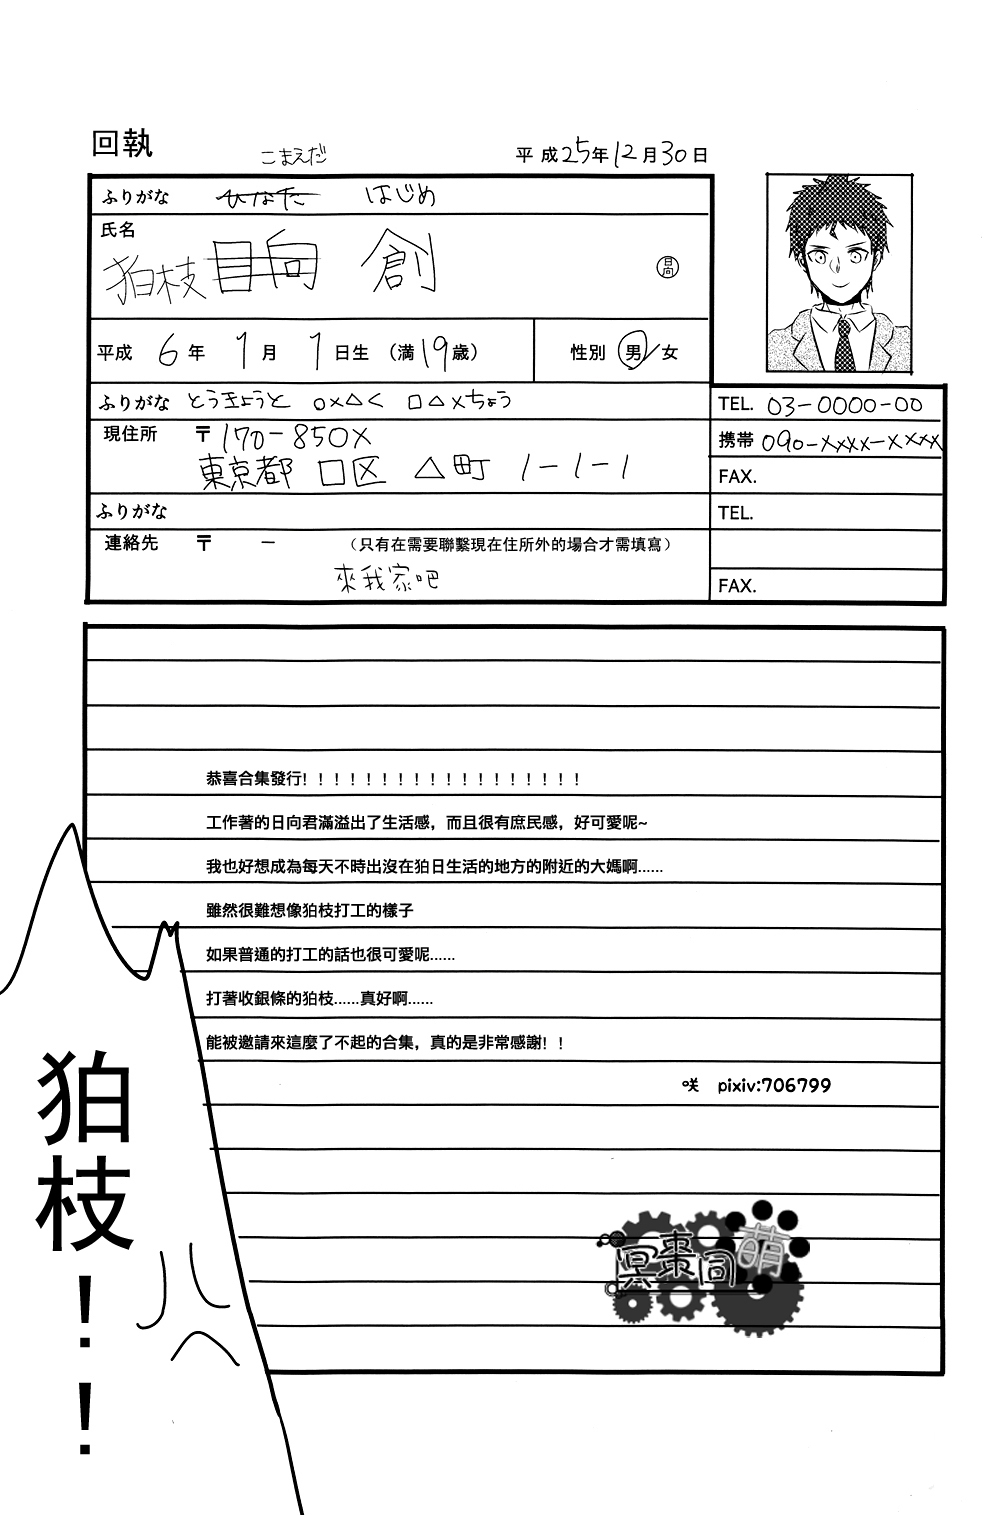 回執
こまえだ
平成25年12月30日
ふりがな ひなた はじめ
氏名
狛枝 日向 創
日向
平成 6年 1月 1日生 (満19歳) 性別 男/女
ふりがな とうきょうと ○×△く □△×ちょう
TEL. 03-0000-00
現住所 〒170-850X
携帯 090-xxxx-xxxx
東京都 □区 △町 1-1-1
FAX.
ふりがな
TEL.
連絡先 〒 - (只有在需要聯繫現在住所外的場合才需填寫)
來我家吧
FAX.
恭喜合集發行!!!!!!!!!!!!!!!!!!
工作著的日向君滿溢出了生活感，而且很有庶民感，好可愛呢~
我也好想成為每天不時出沒在狛日生活的地方的附近的大媽啊......
雖然很難想像狛枝打工的樣子
如果普通的打工的話也很可愛呢......
打著收銀條的狛枝......真好啊......
能被邀請來這麼了不起的合集，真的是非常感謝!!
咲 pixiv:706799
狛枝!!
冥棗同萌